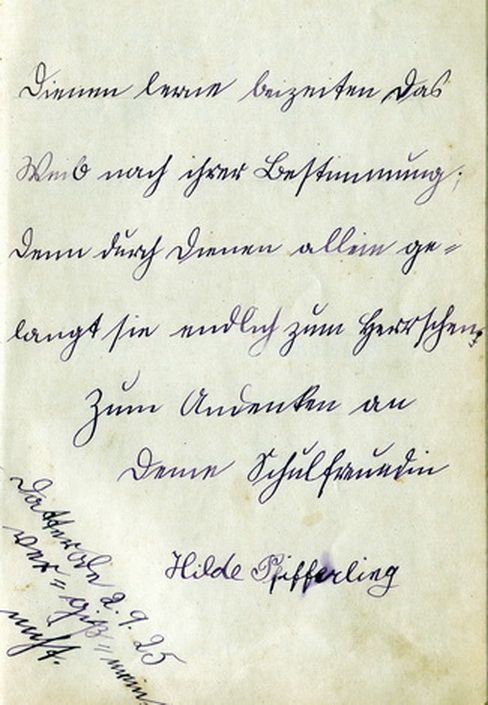 Dienen lerne beizeiten das
Weib nach ihrer Bestimmung;
denn durch Dienen allein ge=
langt sie endlich zum Herrschen.
Zum Andenken an
Deine Schulfreundin
Hilde Pfifferling
Datterode 2.9.25
ver=giß=mein
nicht.